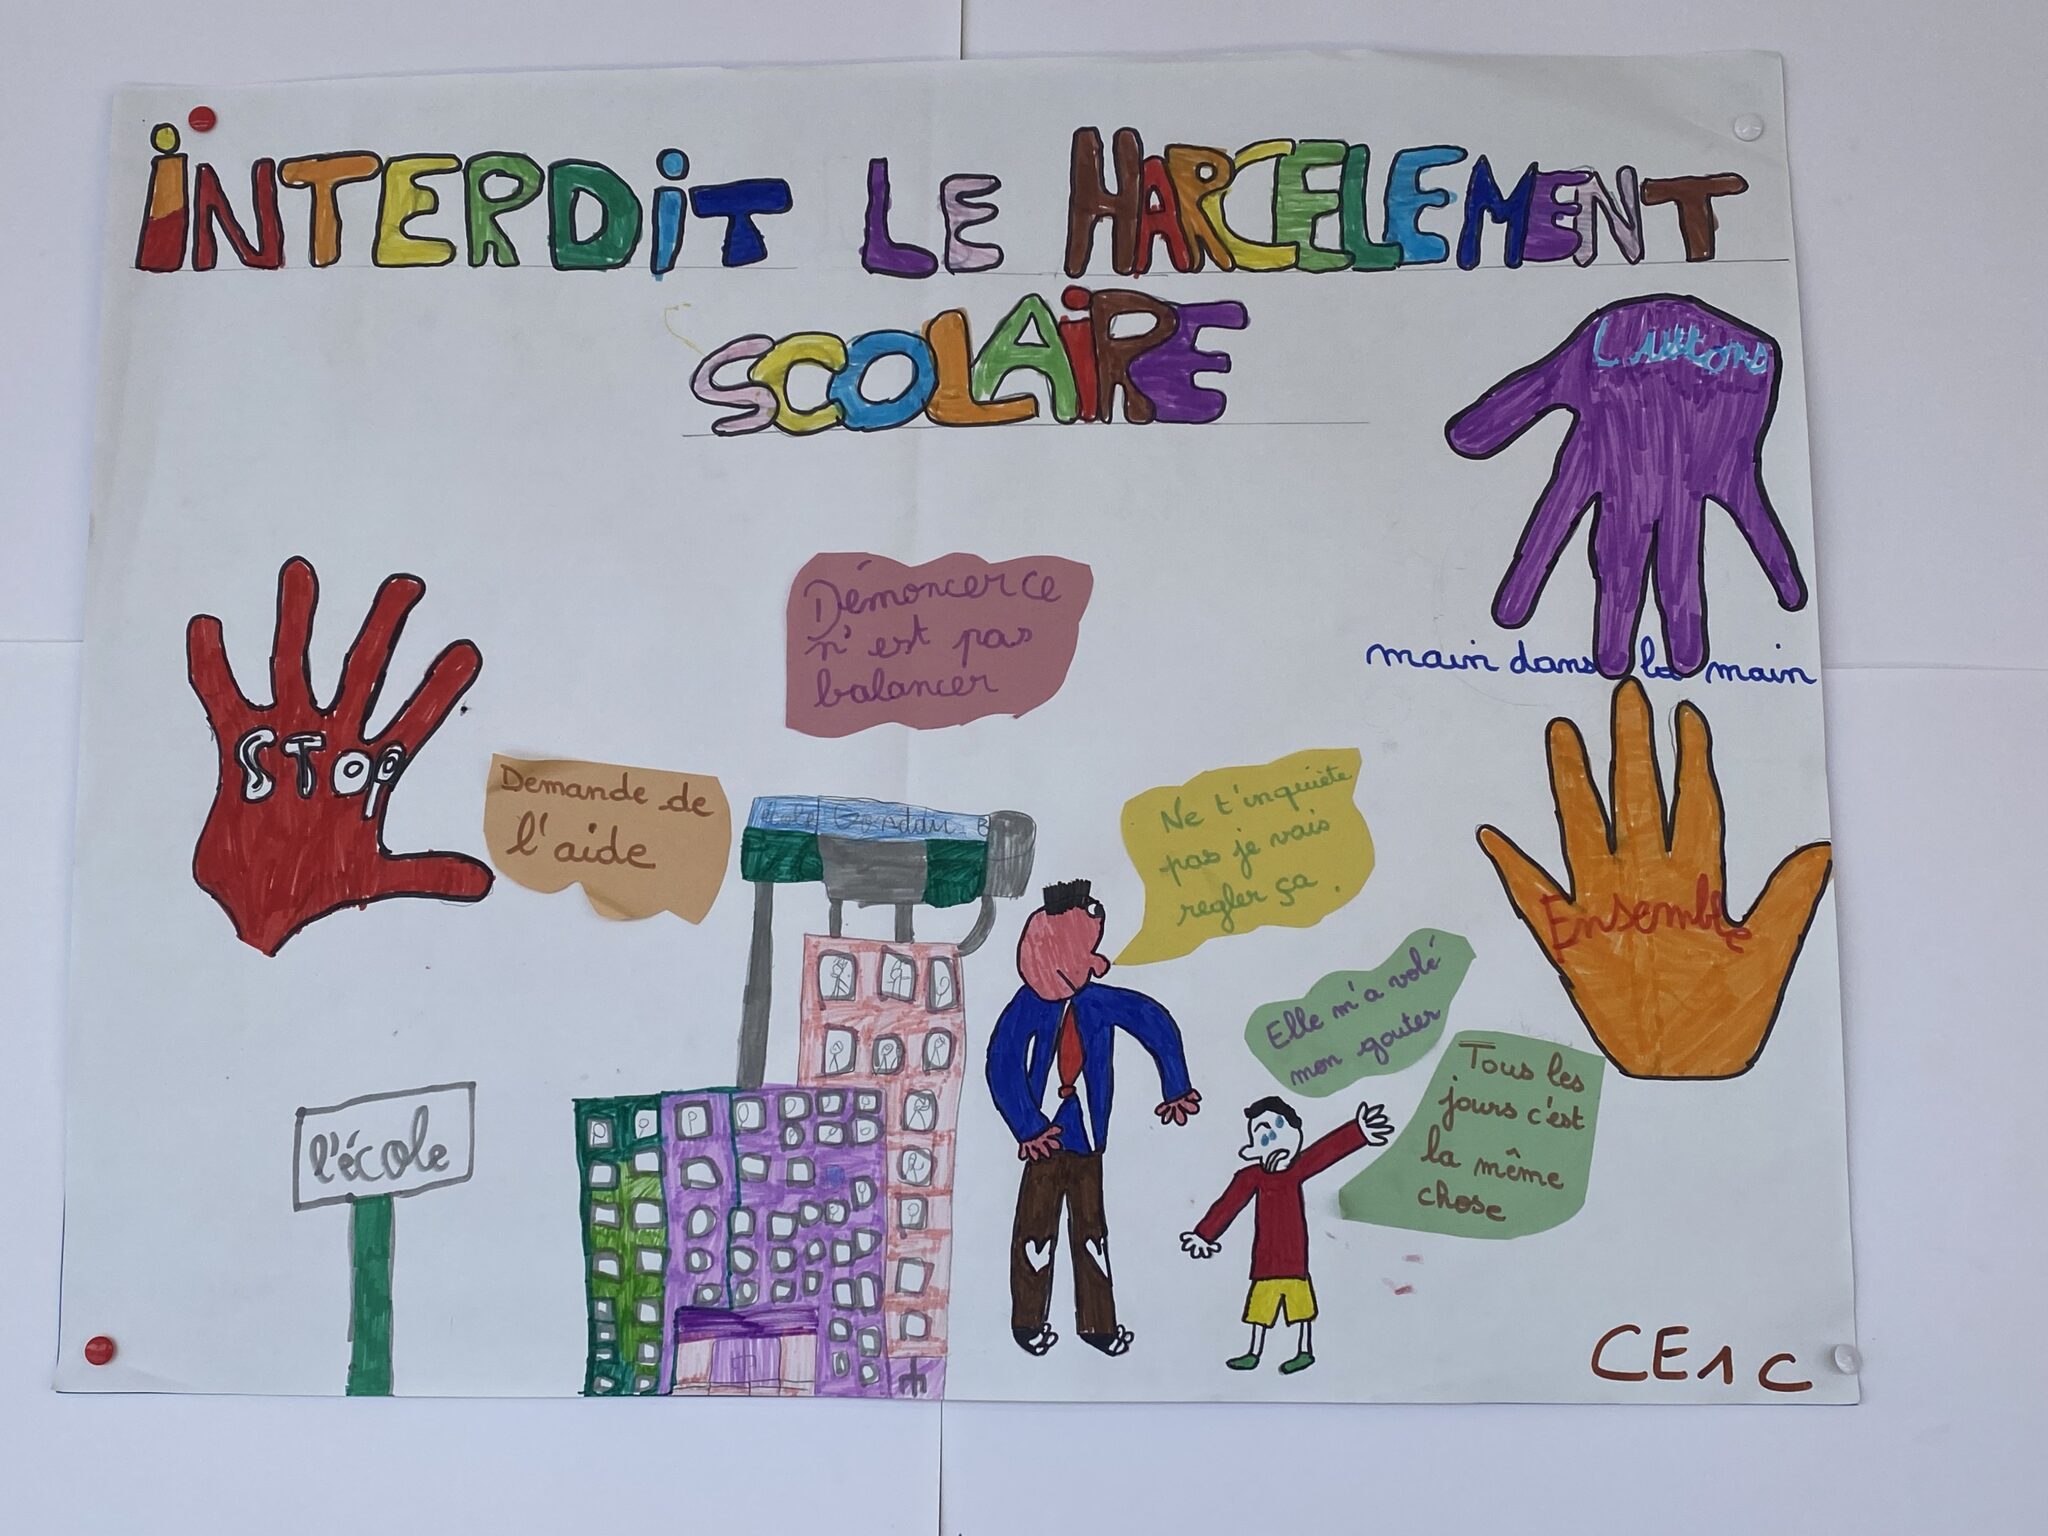 INTERDIT LE HARCELEMENT
SCOLAIRE
Luttons
main dans la main
Ensemble
STOP
Démoncer ce
n'est pas
balancer
Demande de
l'aide
Ne t'inquiète
pas je vais
regler ça.
Elle m'a volé
mon gouter
Tous les
jours c'est
la même
chose
l'école
CE1 C